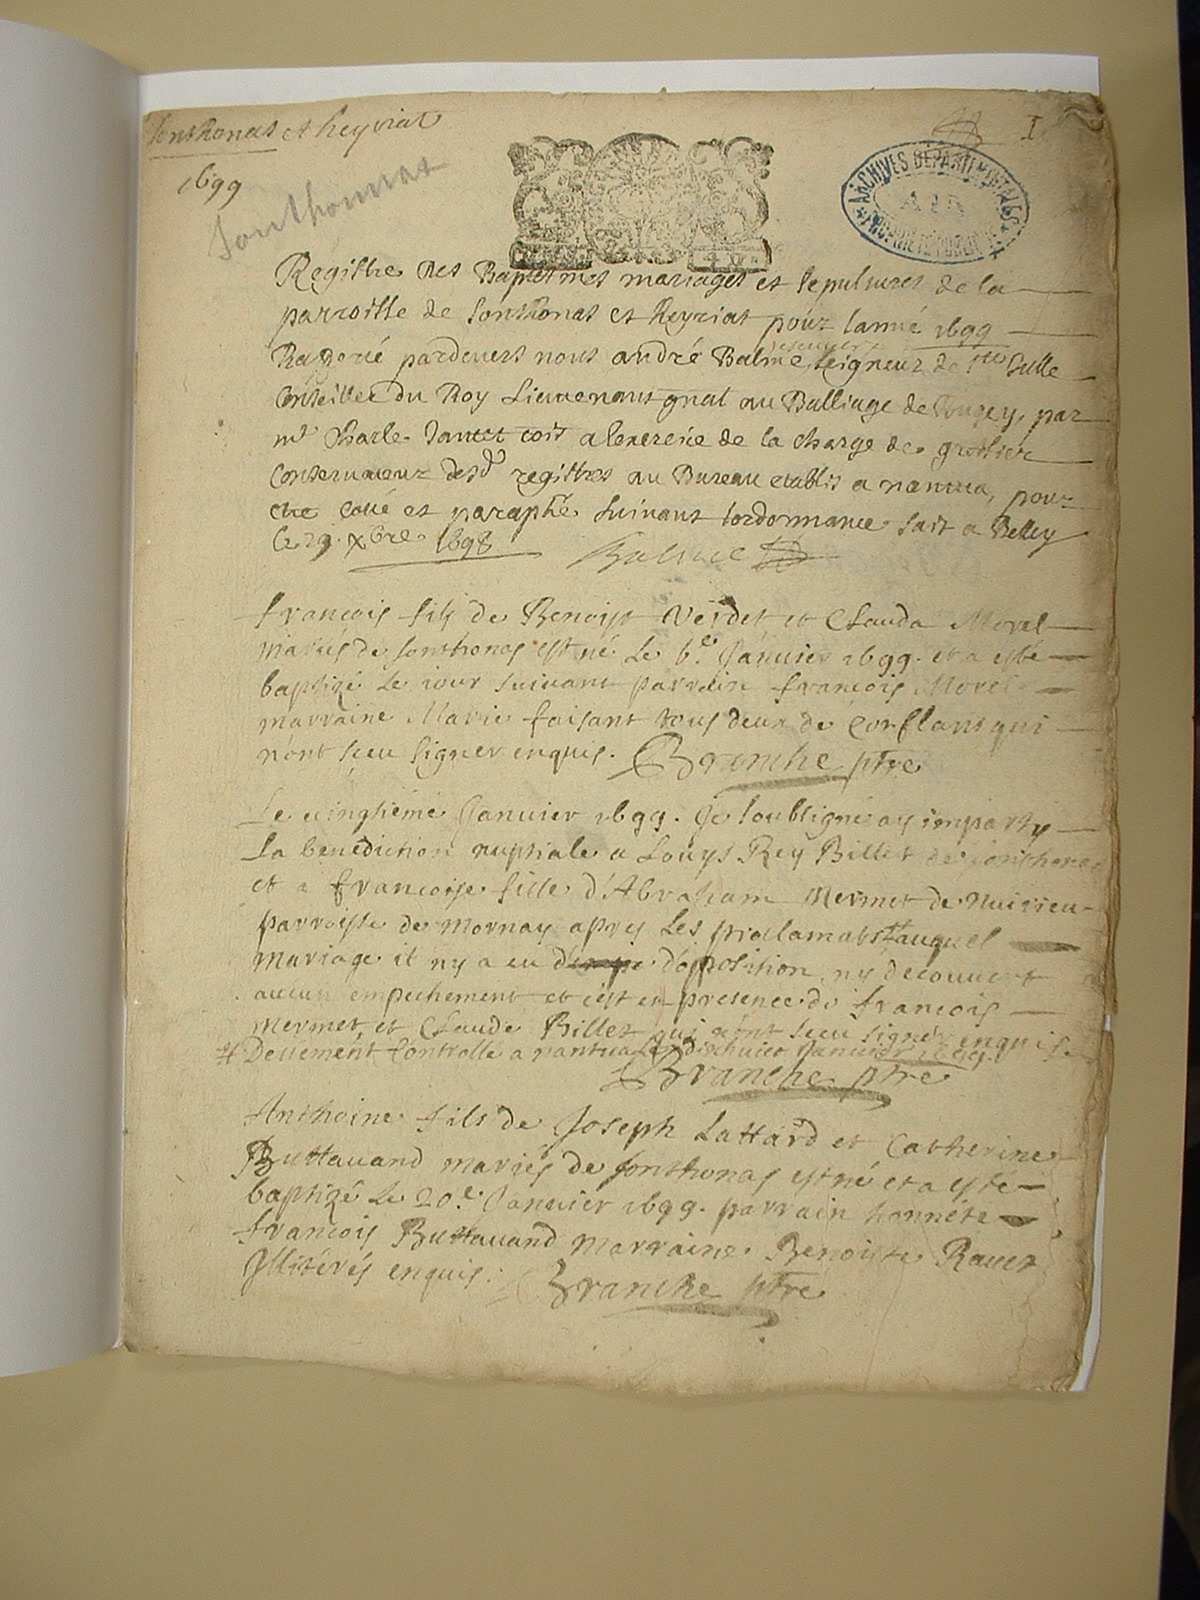 Sonthonas et heyriat
1699
Sonthonnas
I
ARCHIVES DEPARTEMENTALES
AIN
Régistre des Baptesmes mariages et sepultures de la
parroisse de Sonthonas et heyriat pour lanné 1699
pardevers nous andré Balme seigneur de
Conseiller du Roy Lieutenant gnal au Balliage de Bugey, par
mr Charle cois a lexercice de la charge de greffier
Conservateur desd registres au Bureau etablis a nantua, pour
etre coué et paraphé suivant lordonnance fait a Belley
le 29. xbre 1698 Balme
François fils de Benoist Verdet et Clauda Morel
mariés de sonthonas est né le 6.e Janvier 1699. et a esté
baptizé le iour suivant parrain françois Morel
marraine Marie faisant tous deux de Corflans qui
n'ont sceu signer enquis. Branche ptre
Le vingtiéme Janvier 1699. Je soubsigné ay imparty
La benediction nuptiale a Louys Rey Billet de sonthonas
et a francoise fille d'Abraham Mermet de
parroisse de Mornay apres les proclamats auquel
mariage il ny a eu d'opposition ny decouvert
aucun empechement et c'est en presence de françois
Mermet et Claude Billet qui n'ont sceu signer enquis.
# Deuement Controlle a nantua Le dixhuict Janvier 1699.
Branche ptre
Anthoine fils de Joseph Lattard et Catherine
Buttavand mariés de sonthonas est né et a esté
baptizé le 20.e Janvier 1699. parrain honnéte
françois Buttavand marraine Benoiste Ravet
Illitérés enquis. Branche ptre